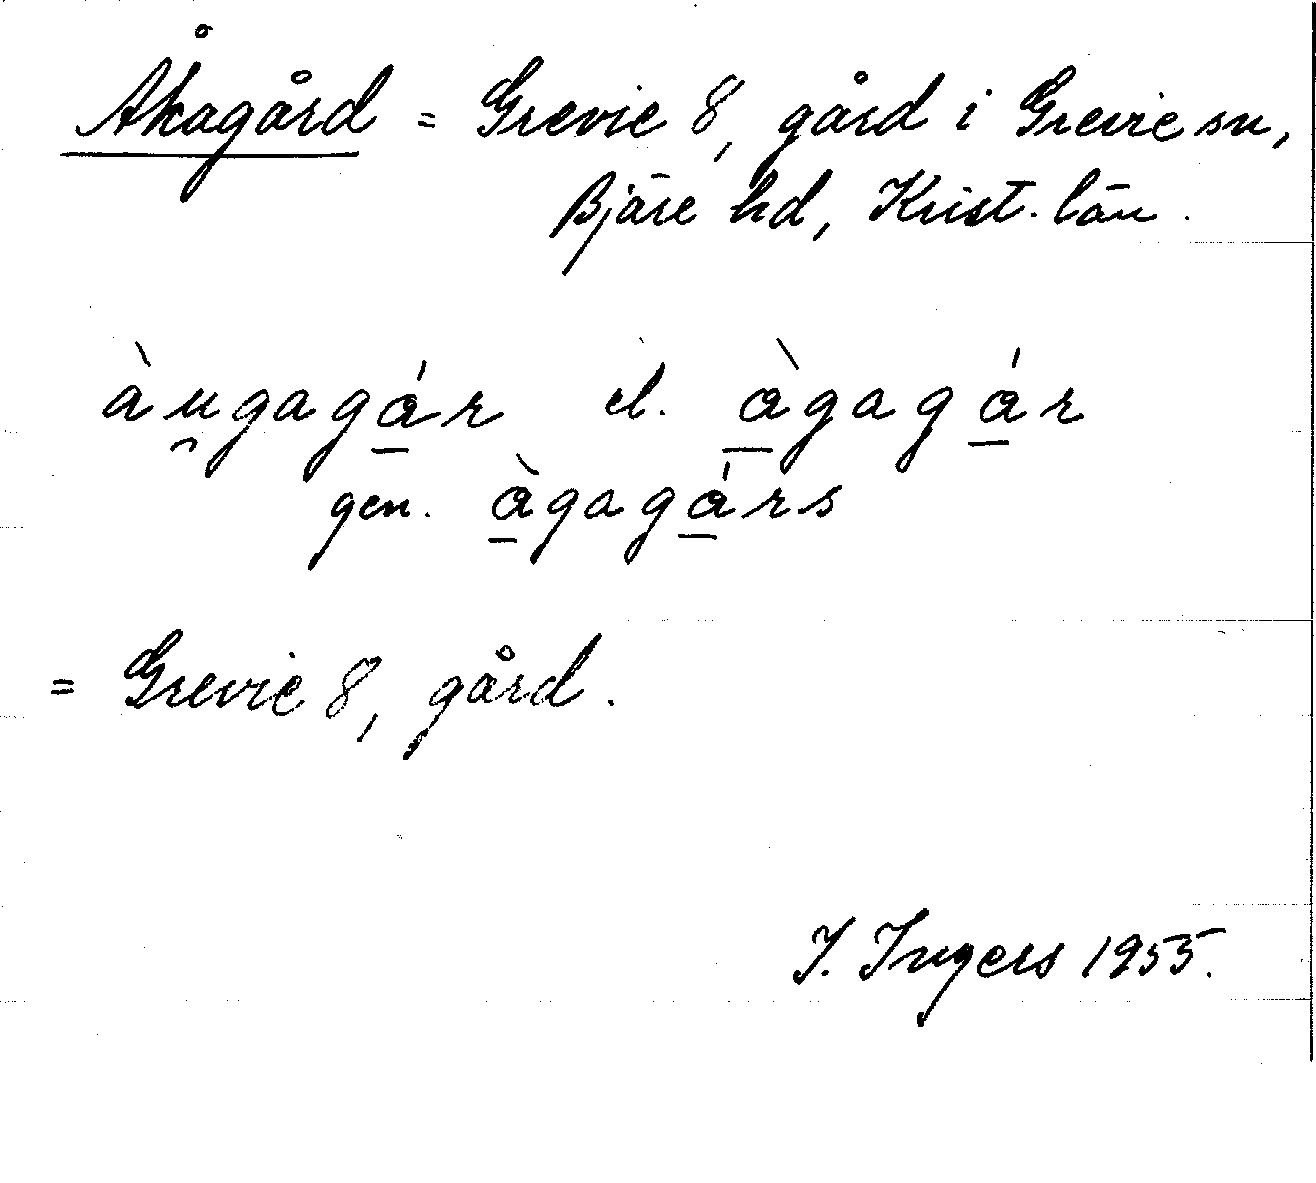 Åkagård = Grevie 8, gård i Grevie sn,
Bjäre hd, Krist. län.
àu̯gagá̱r el. à̱gagá̱r
gen. à̱gagá̱rs
= Grevie 8, gård.
I. Ingers 1955.